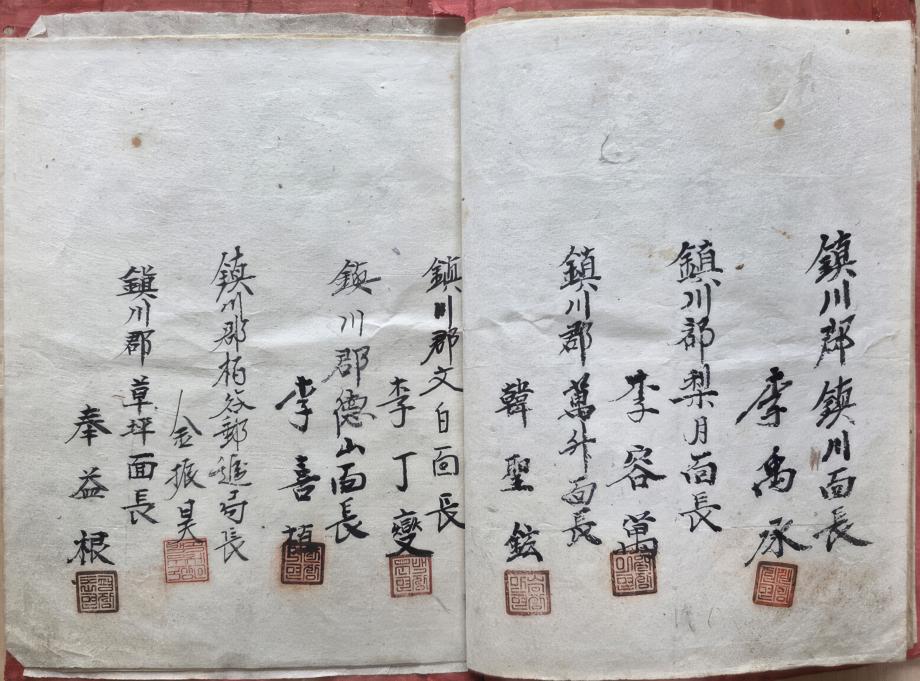 鎭川郡鎭川面長
李禹承
鎭川郡梨月面長
李容萬
鎭川郡萬升面長
韓聖鉉
鎭川郡文白面長
李丁變
鎭川郡德山面長
李喜
鎭川郡栢谷郵遞局長
金振昊
鎭川郡草坪面長
奉益根